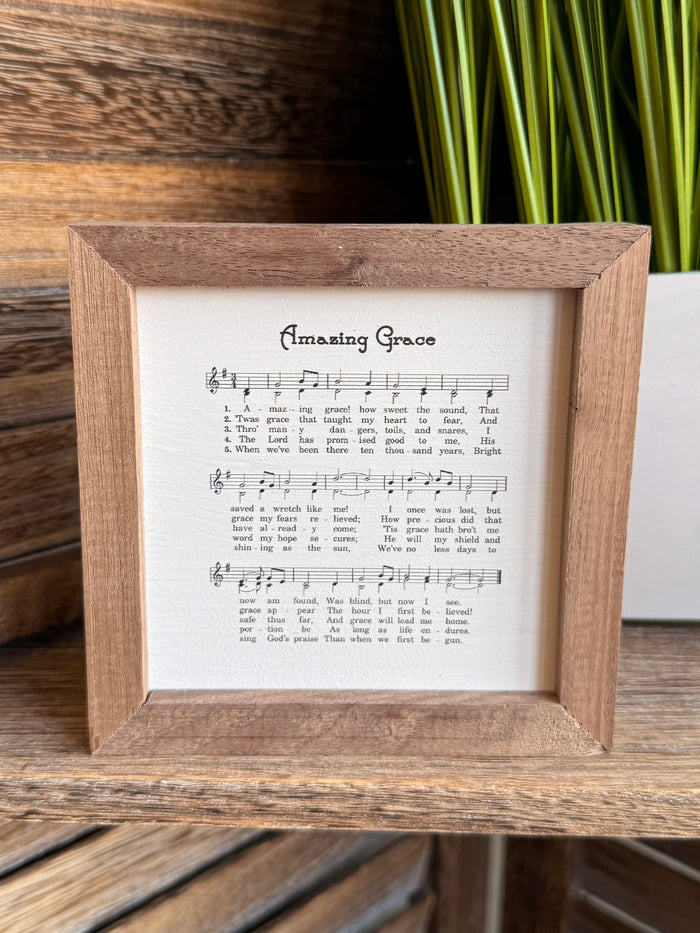 Amazing Grace
1. A - maz - ing grace! how sweet the sound, That
2. 'Twas grace that taught my heart to fear, And
3. Thro' man - y dan - gers, toils, and snares, I
4. The Lord has prom - ised good to me, His
5. When we've been there ten thou - sand years, Bright
saved a wretch like me! I once was lost, but
grace my fears re - lieved; How pre - cious did that
have al - read - y come; 'Tis grace hath bro't me
word my hope se - cures; He will my shield and
shin - ing as the sun, We've no less days to
now am found, Was blind, but now I see.
grace ap - pear The hour I first be - lieved!
safe thus far, And grace will lead me home.
por - tion be As long as life en - dures.
sing God's praise Than when we first be - gun.